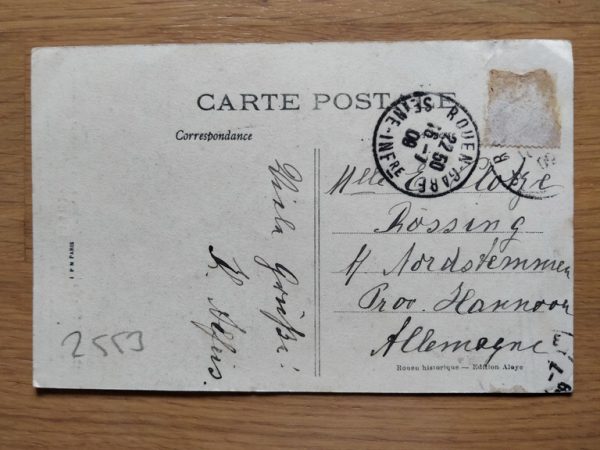 CARTE POSTALE
Correspondance
ROUEN-GARE
22 50
16 -7
09
SEINE-INFRE
Mlle E. Plotze
Rössing
b/ Nordstemmen
Prov. Hannover
Allemagne
Viele Grüße!
K.
I P M PARIS
2553
Rouen historique — Edition Alaye